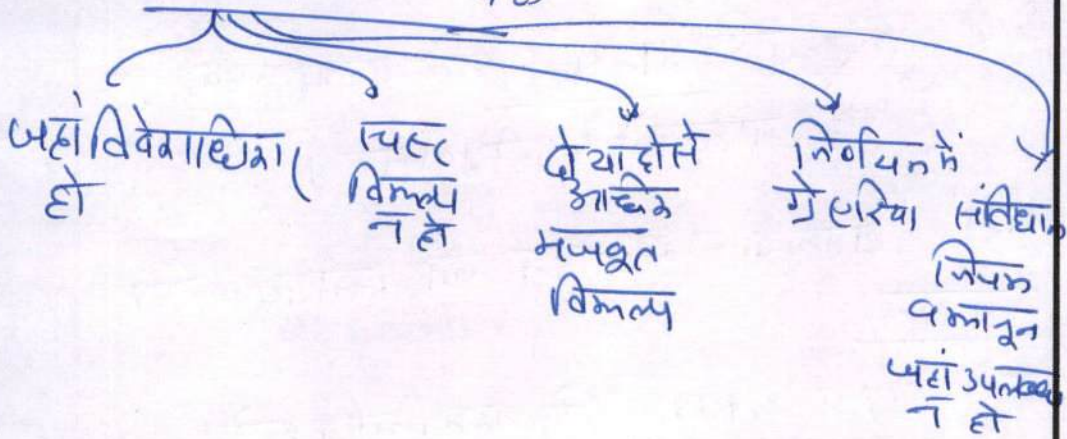 जहां विवेकाधिकार
हो
स्पष्ट
विकल्प
न हो
दो या दो से
अधिक
मजबूत
विकल्प
निर्णयन में
ग्रे एरिया
संविधान
नियम
व कानून
जहां उपलब्ध
न हो